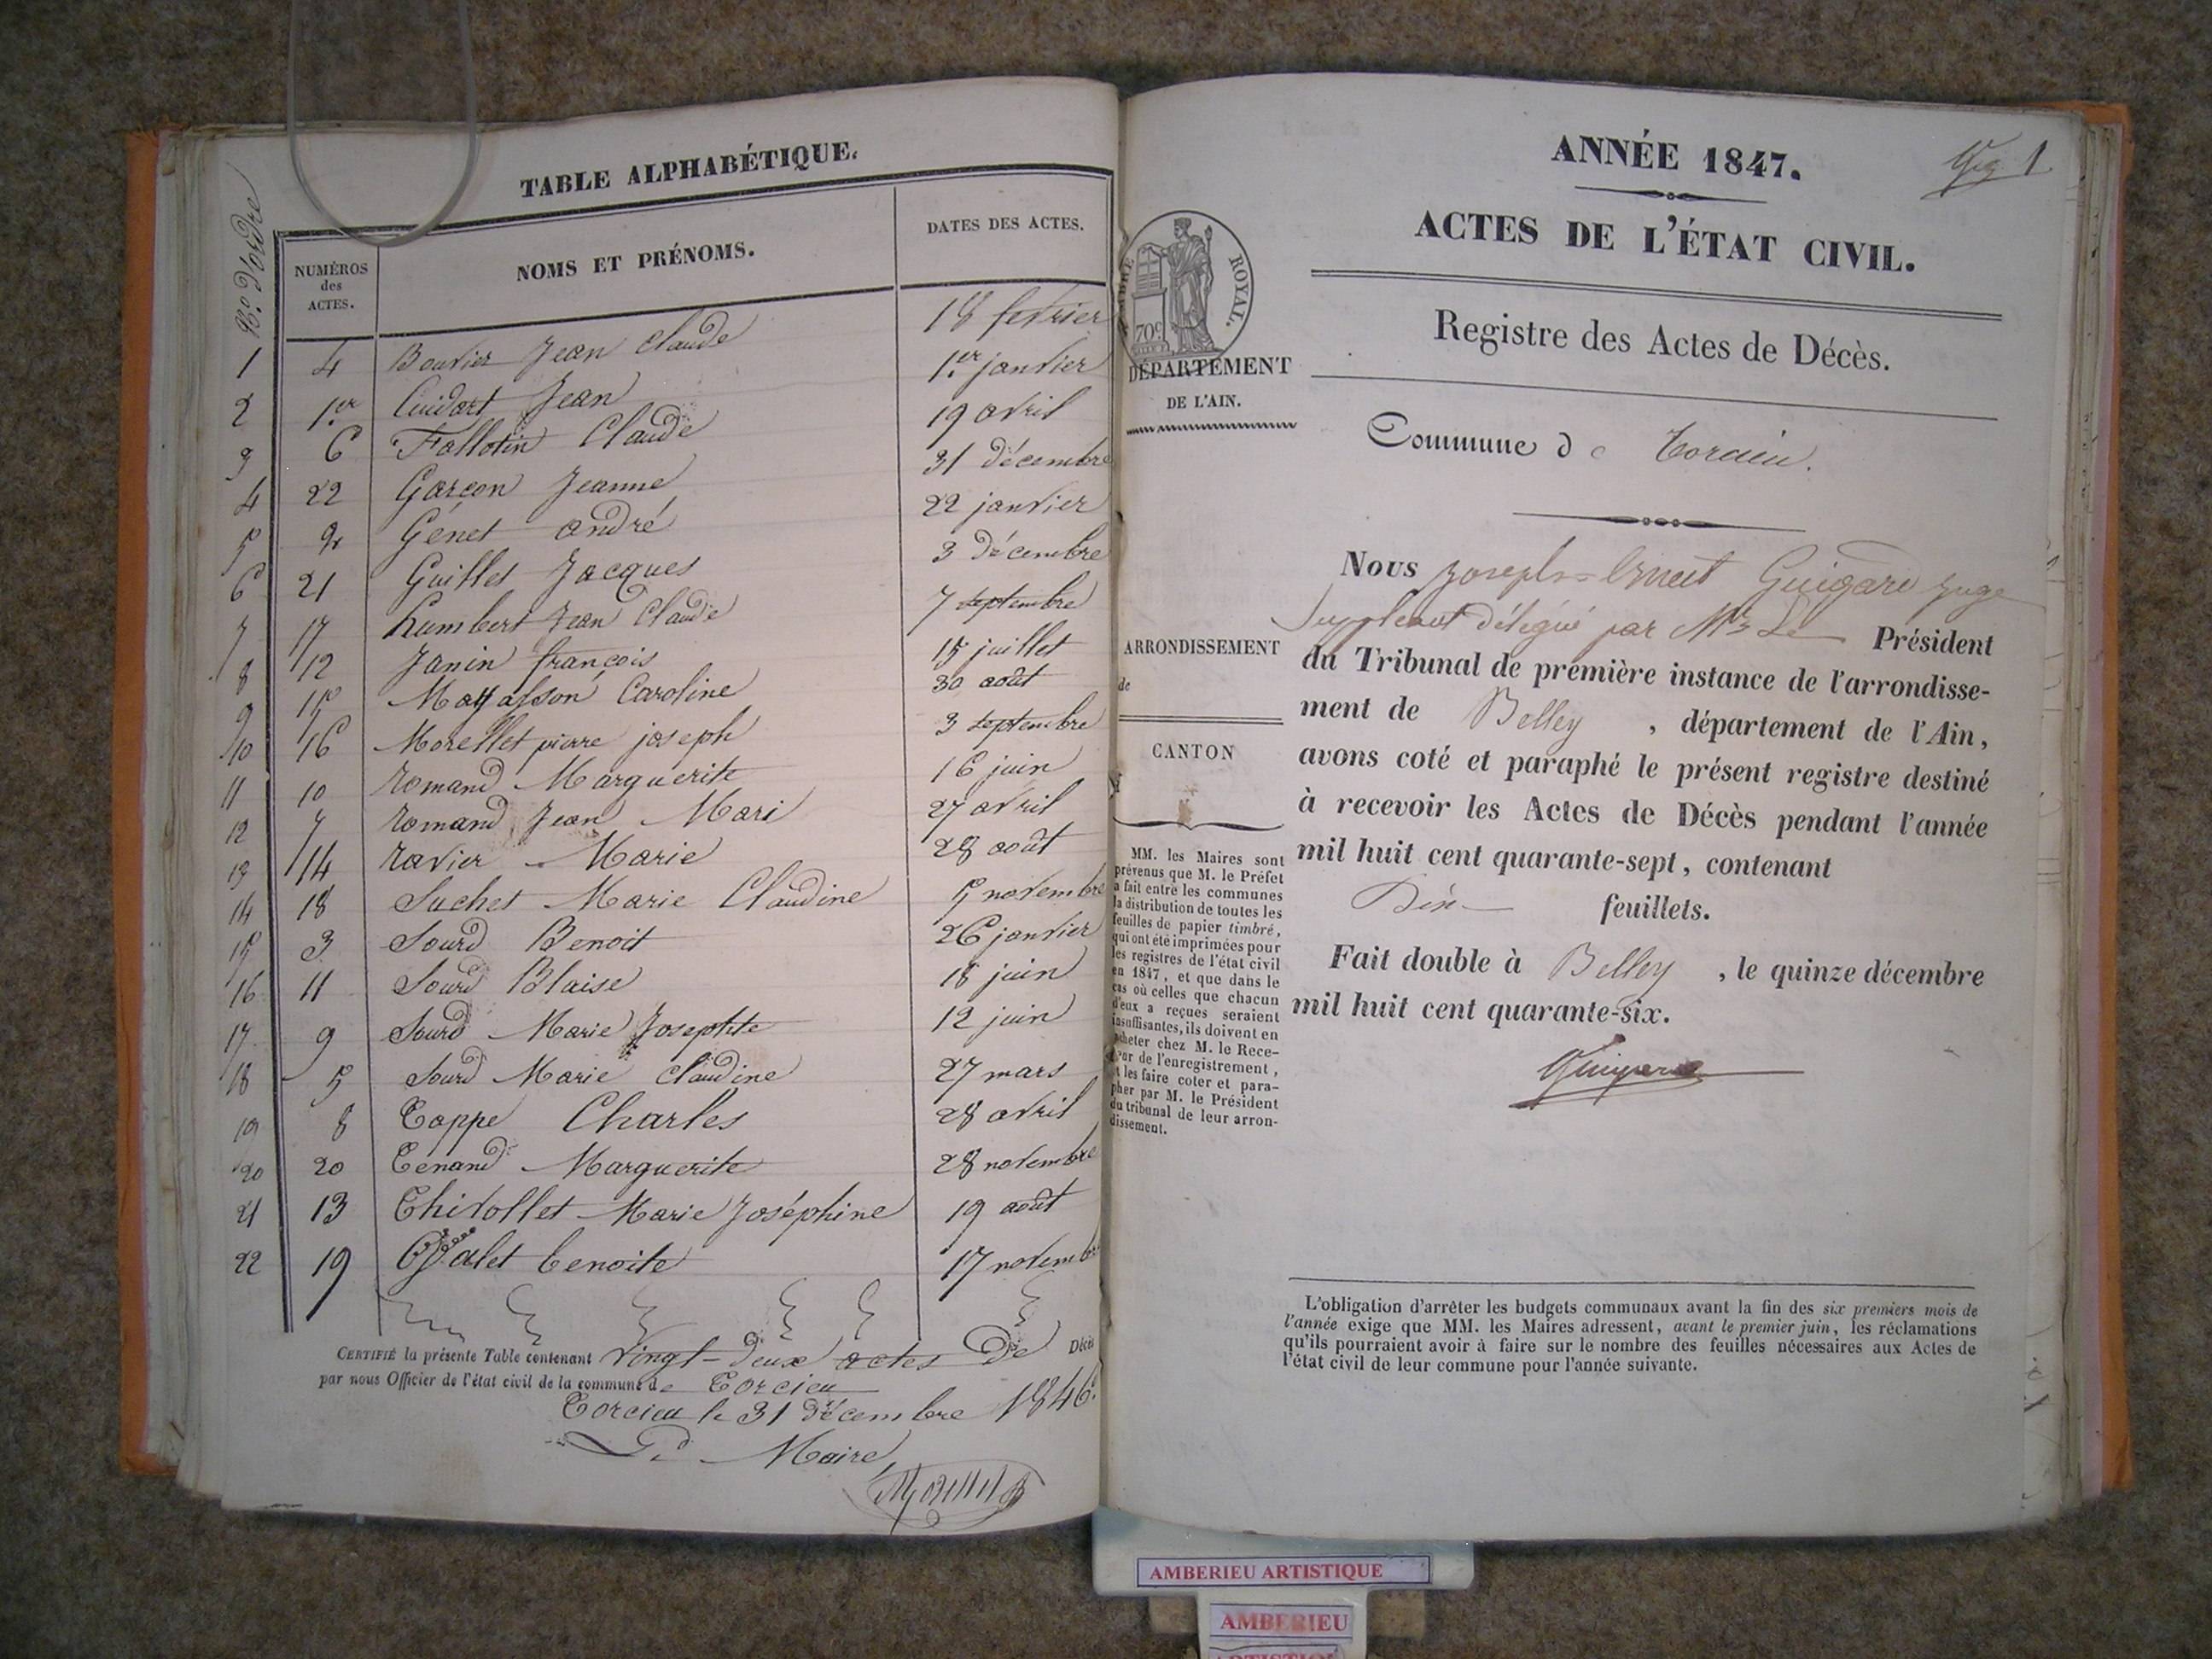 TABLE ALPHABÉTIQUE.
N.º d'ordre
NUMÉROS des ACTES.
NOMS ET PRÉNOMS.
DATES DES ACTES.
1 4 Bouvier Jean Claude 18 fevrier
2 1.er Cuidart Jean 1.er janvier
3 6 Fallotin Claude 19 avril
4 22 Garçon Jeanne 31 décembre
5 2 Génet andré 22 janvier
6 21 Guillet Jacques 3 décembre
7 17 humbert Jean Claude 7 septembre
8 12 Janin françois 15 juillet
9 15 Caroline 30 août
10 16 Morellet pierre joseph 3 septembre
11 10 romand Marguerite 16 juin
12 7 romand Jean Mari 27 avril
13 14 ravier Marie 28 août
14 18 Suchet Marie Claudine 5 novembre
15 3 Sourd Benoit 26 janvier
16 11 Sourd Blaise 18 juin
17 9 Sourd Marie Josephte 12 juin
18 5 Sourd Marie Claudine 27 mars
19 8 Tappe Charles 28 avril
20 20 Tenand Marguerite 28 novembre
21 13 Thivollet Marie Joséphine 19 août
22 19 benoite 17 novembre
CERTIFIÉ la présente Table contenant vingt-deux actes de Décès
par nous Officier de l'état civil de la commune de Torcieu
Torcieu le 31 décembre 1846.
Le Maire,
ANNÉE 1847.
1
ACTES DE L'ÉTAT CIVIL.
TIMBRE ROYAL.
70c
Registre des Actes de Décès.
DÉPARTEMENT
DE L'AIN.
Commune de Torcieu.
ARRONDISSEMENT
de
CANTON
MM. les Maires sont
prévenus que M. le Préfet
a fait entre les communes
la distribution de toutes les
feuilles de papier timbré,
qui ont été imprimées pour
les registres de l'état civil
en 1847, et que dans le
cas où celles que chacun
d'eux a reçues seraient
insuffisantes, ils doivent en
acheter chez M. le Rece-
veur de l'enregistrement,
et les faire coter et para-
pher par M. le Président
du tribunal de leur arron-
dissement.
Nous Joseph=Ernest Guigard juge
Suppleant délégué par Mr Le Président
du Tribunal de première instance de l'arrondisse-
ment de Belley , département de l'Ain,
avons coté et paraphé le présent registre destiné
à recevoir les Actes de Décès pendant l'année
mil huit cent quarante-sept, contenant
feuillets.
Fait double à Belley , le quinze décembre
mil huit cent quarante-six.
L'obligation d'arrêter les budgets communaux avant la fin des six premiers mois de
l'année exige que MM. les Maires adressent, avant le premier juin, les réclamations
qu'ils pourraient avoir à faire sur le nombre des feuilles nécessaires aux Actes de
l'état civil de leur commune pour l'année suivante.
AMBERIEU ARTISTIQUE
AMBERIEU
ARTISTIQUE